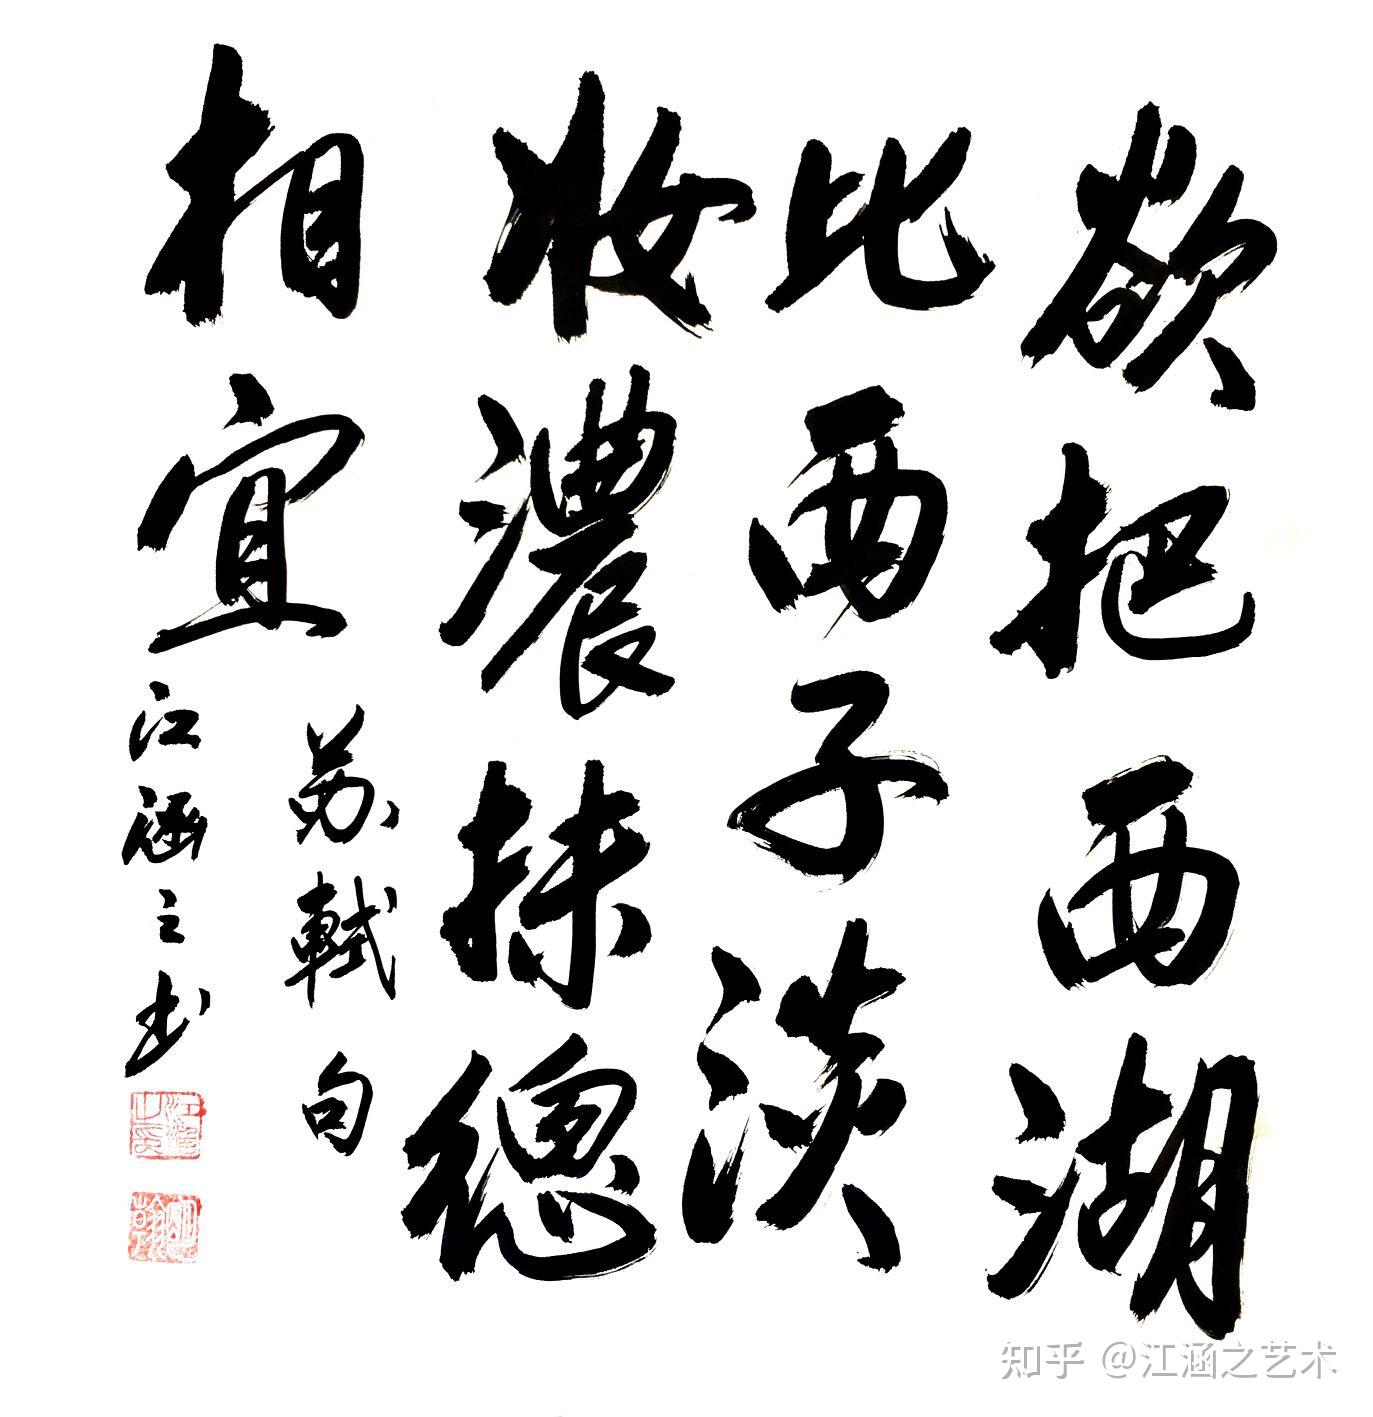 欲把西湖
比西子淡
妝濃抹總
相宜
蘇軾句
江涵之书
知乎 @江涵之艺术